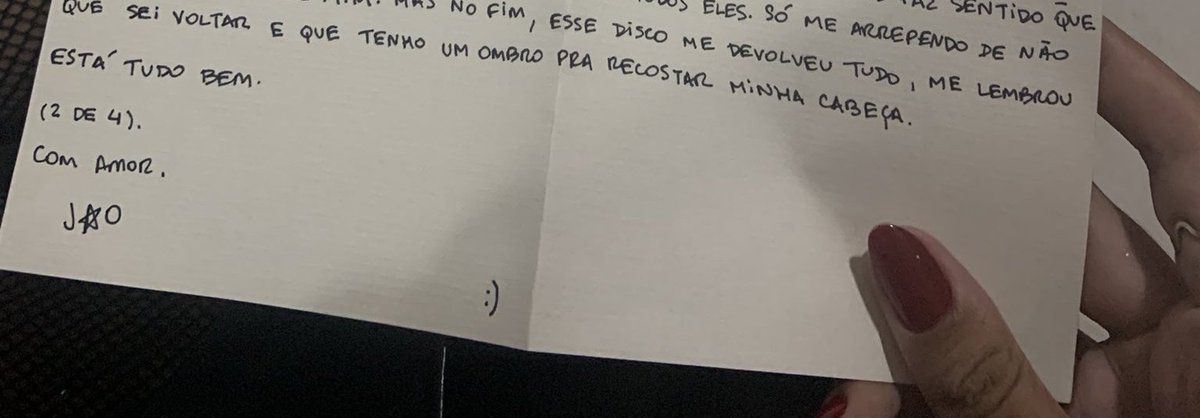 SENTIDO QUE
ELES. SÓ ME ARREPENDO DE NÃO
MAS NO FIM, ESSE DISCO ME DEVOLVEU TUDO, ME LEMBROU
QUE SEI VOLTAR E QUE TENHO UM OMBRO PRA RECOSTAR MINHA CABEÇA.
ESTÁ TUDO BEM.
(2 DE 4).
COM AMOR.
JÃO
:)